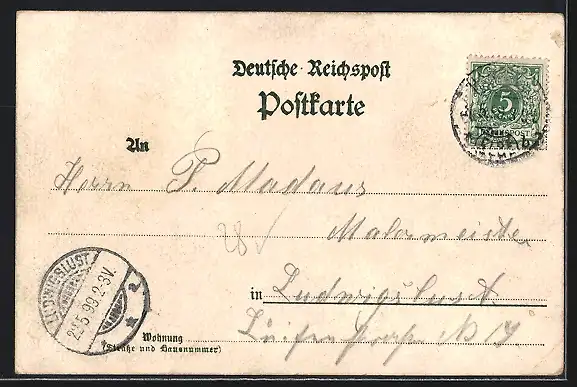 Deutsche Reichspost
Postkarte
5
REICHSPOST
An
Herrn P. Madaus
Malermeister
28
LUDWIGSLUST
2 5 99 2-3V.
in Ludwigslust
Wohnung
(Straße und Hausnummer)
N 19